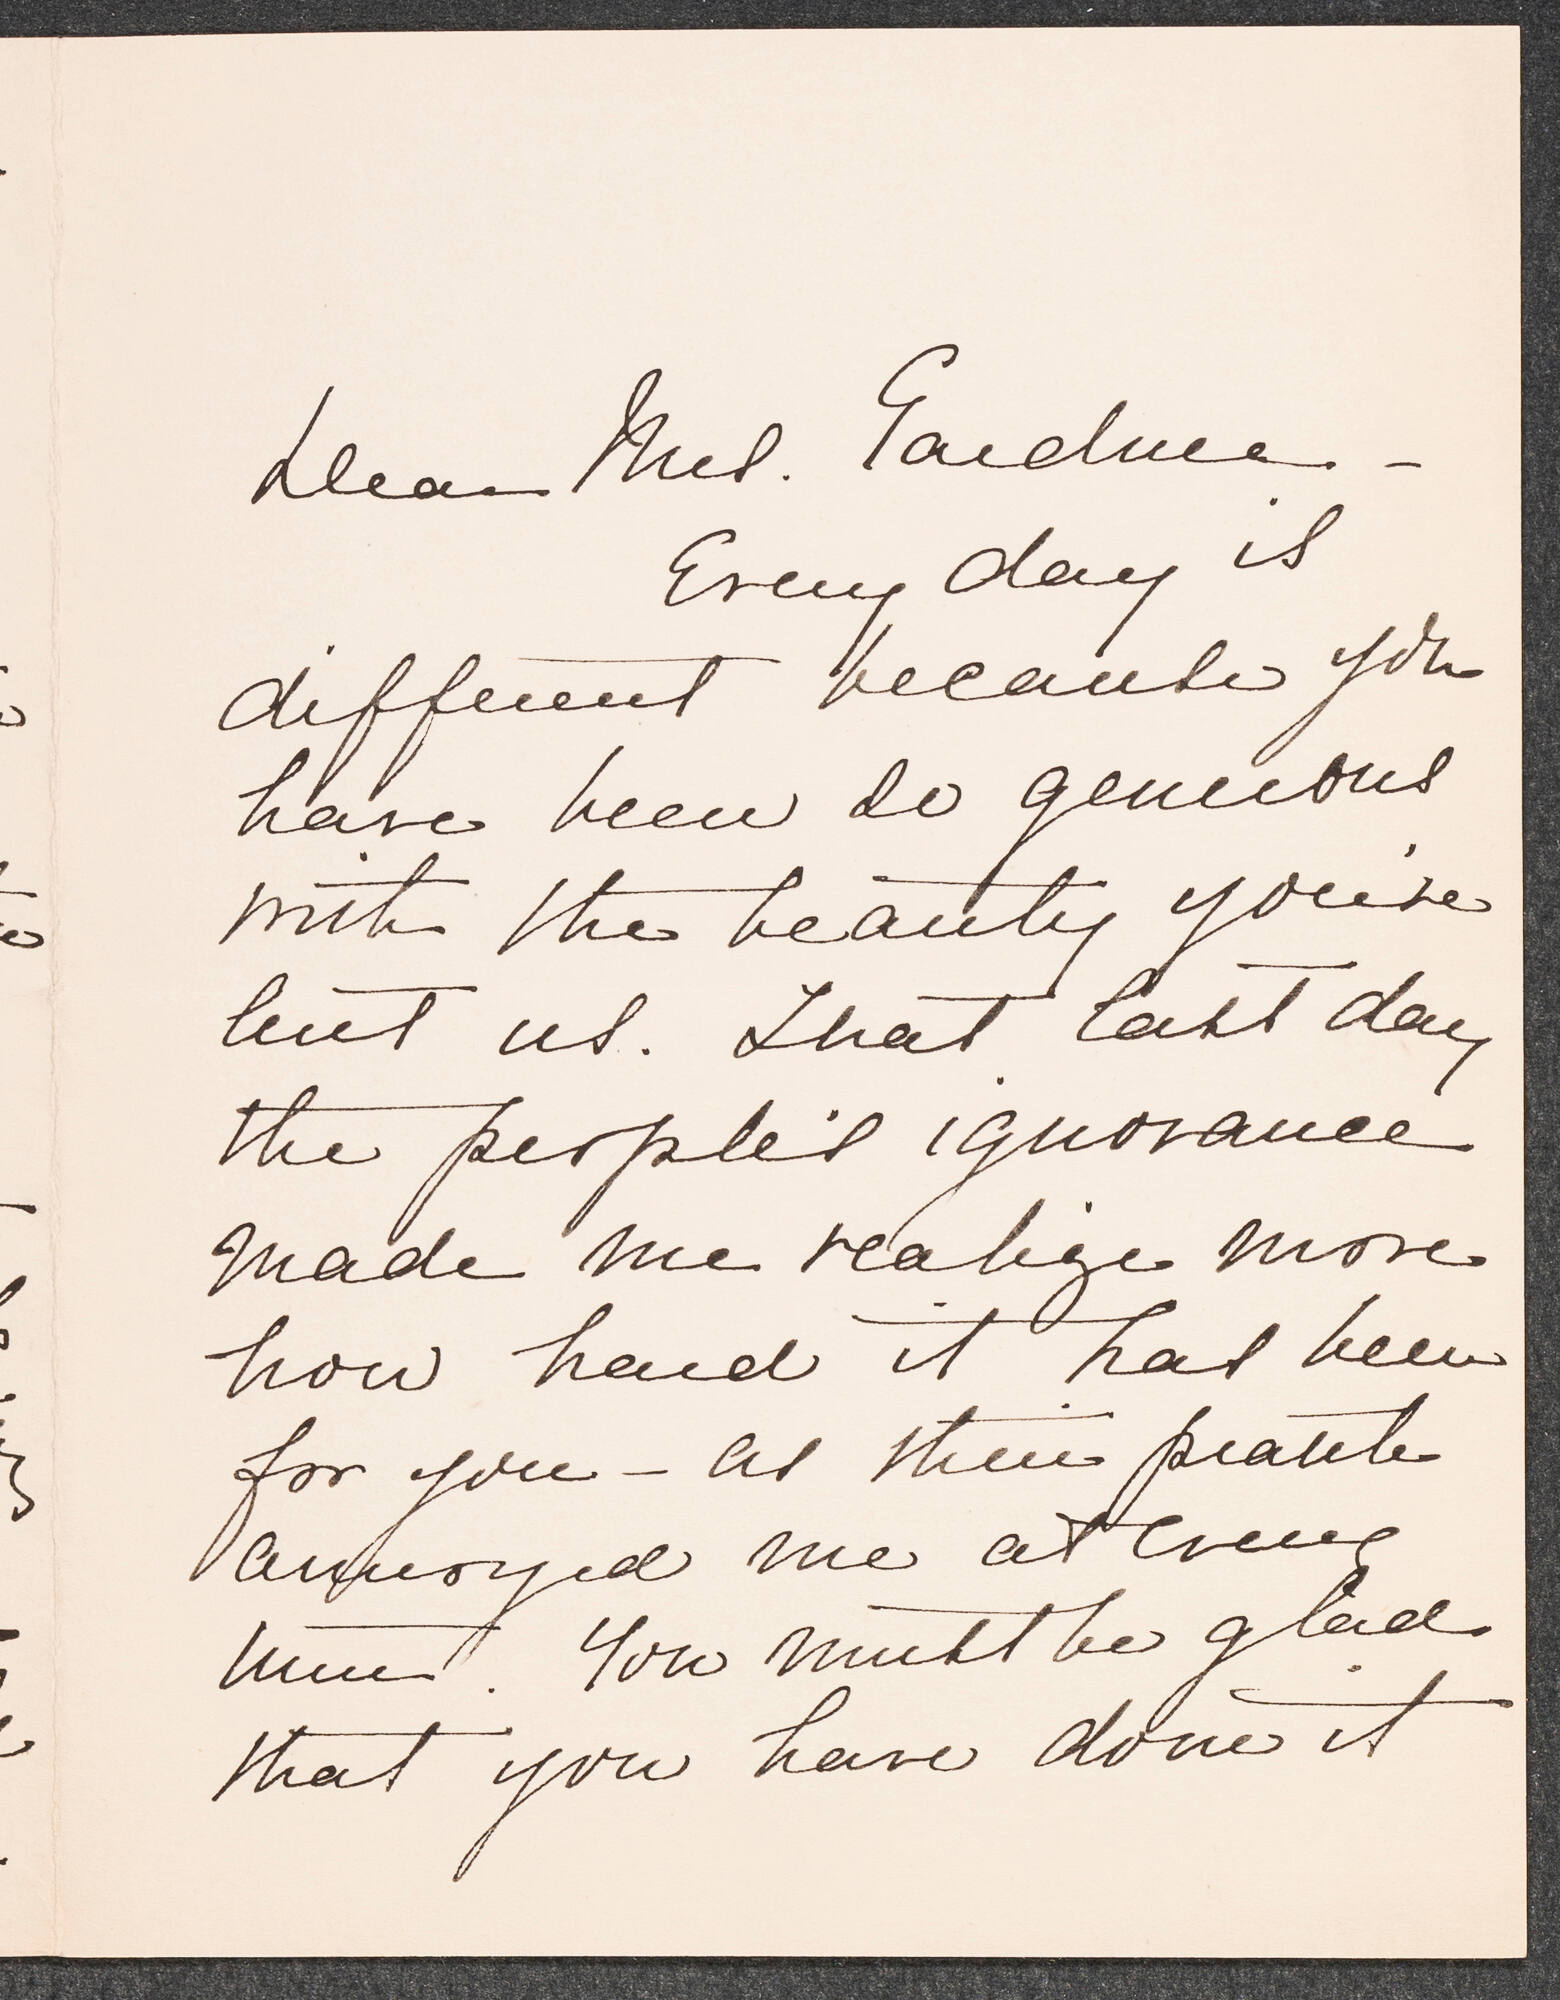 Dear Mrs. Gardner. -
Every day is
different because you
have been so generous
with the beauty you've
lent us. That last day
the people's ignorance
made me realize more
how hard it has been
for you - as their prattle
annoyed me at every
turn. You must be glad
that you have done it